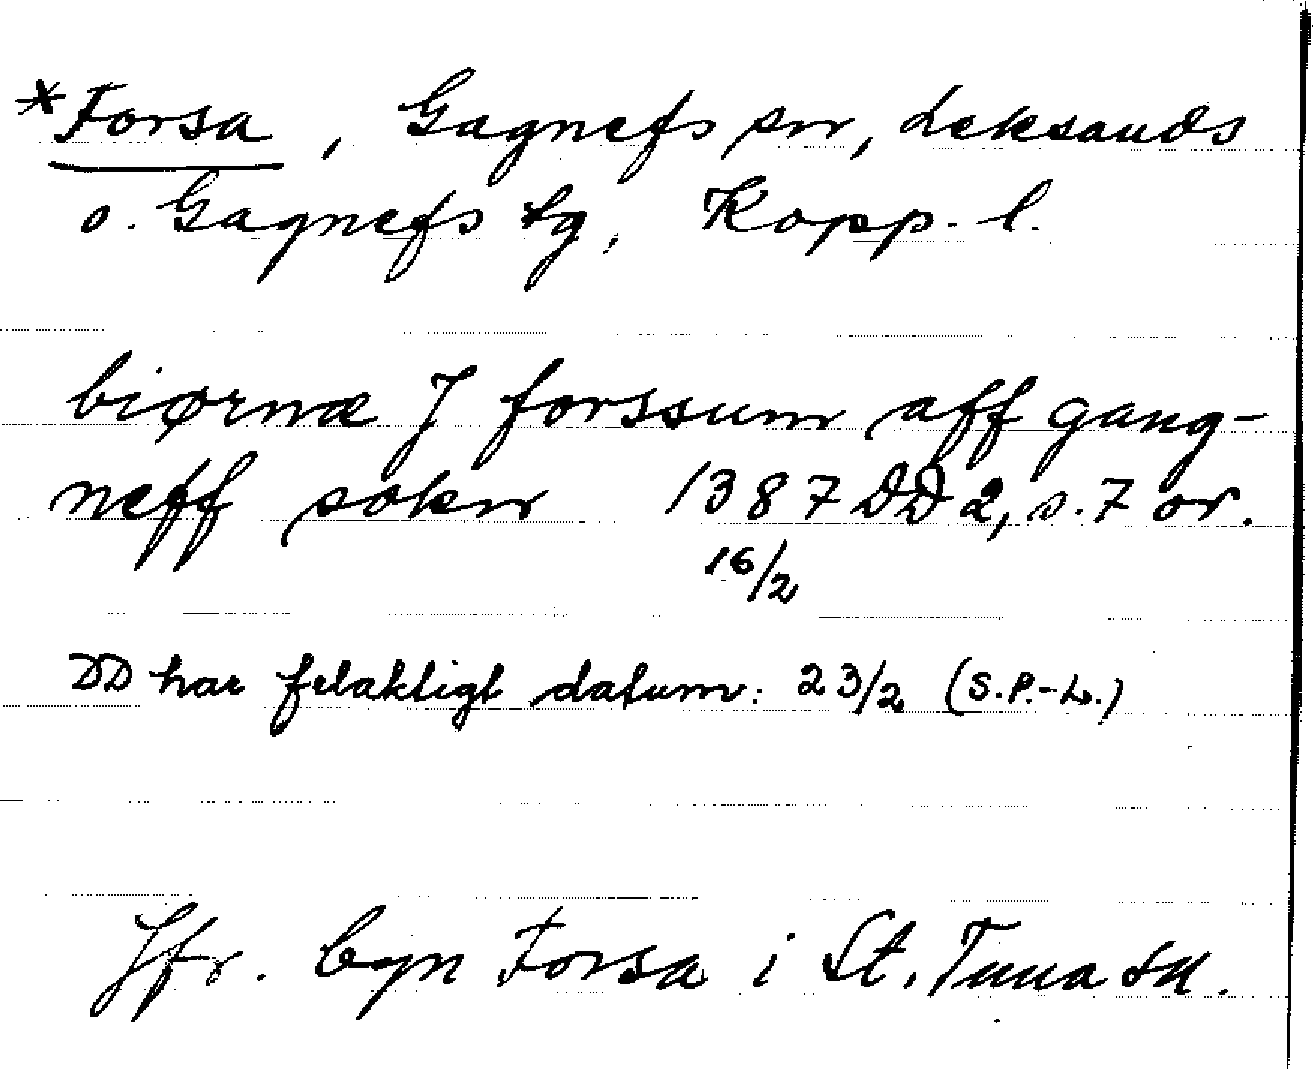 *Forsa, Gagnefs sn, Leksands
o. Gagnefs tg, Kopp. l.
biørnæ J forssum aff gang-
neff sokn 1387 DD 2, s. 7 or.
16/2
DD har felaktigt datum: 23/2 (S.P.-L.)
Jfr. byn Forsa i St. Tuna sn.